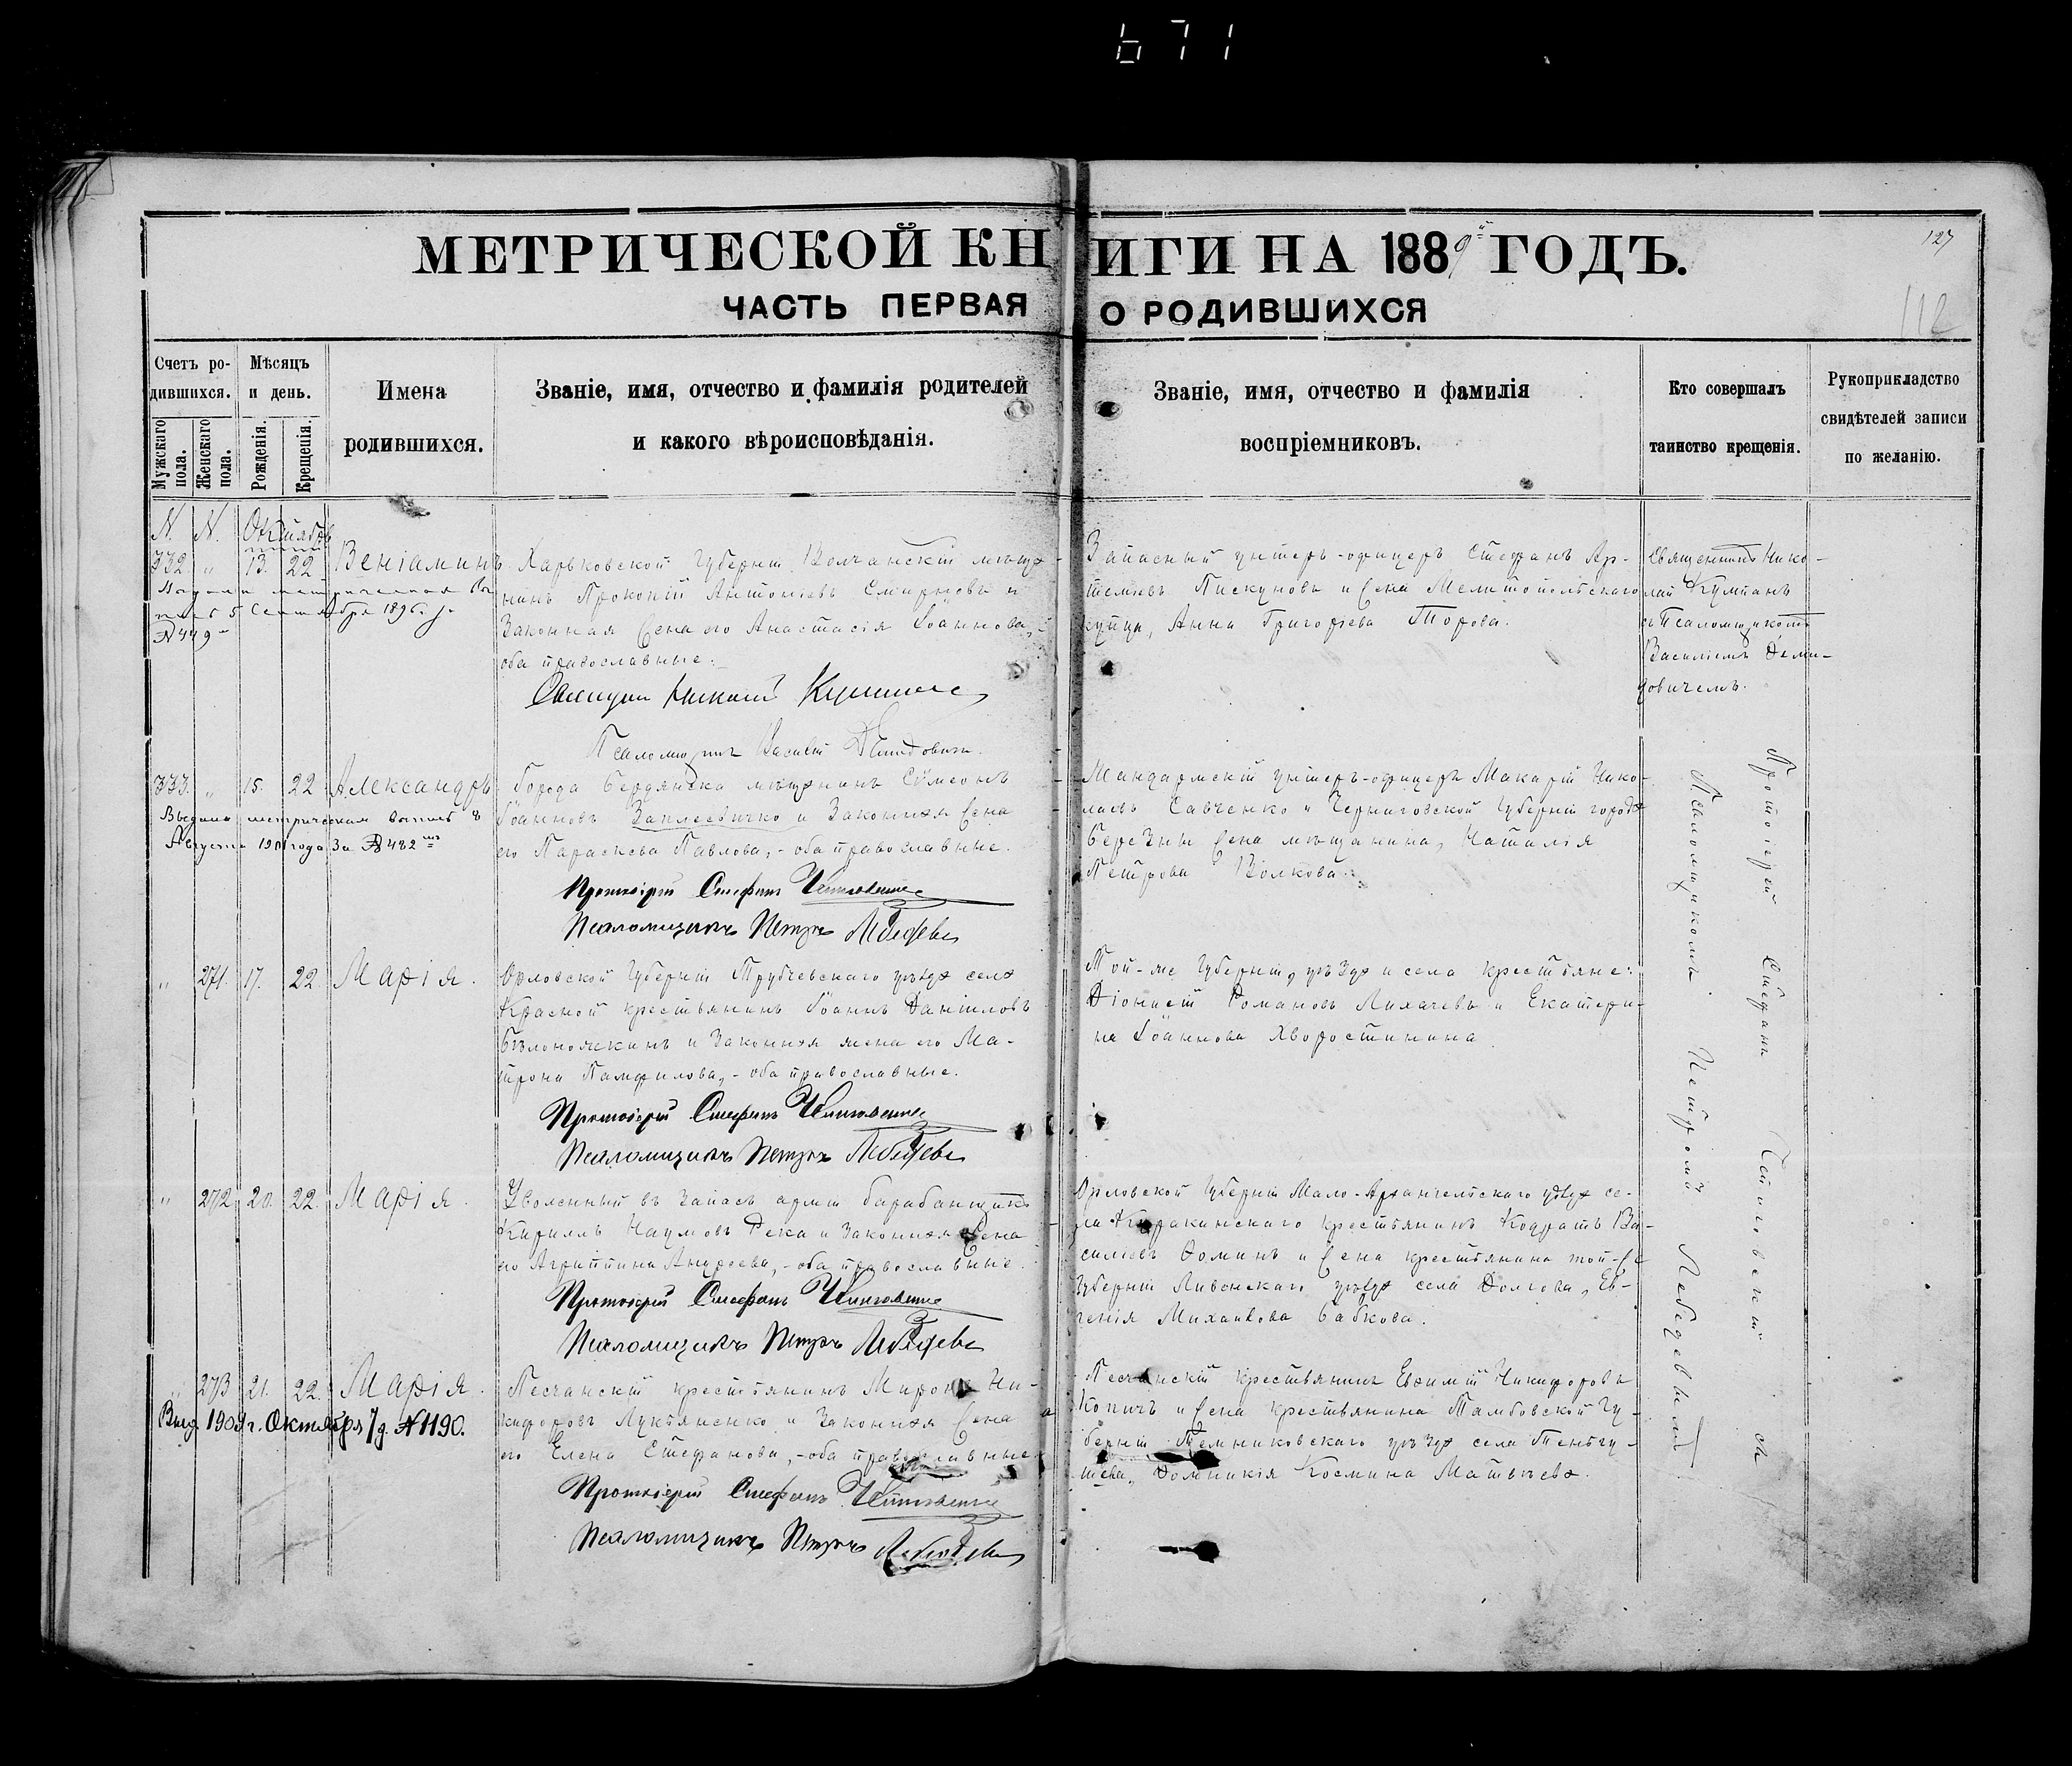 671
МЕТРИЧЕСКОЙ КНИГИ НА 1889й ГОДЪ.
127
ЧАСТЬ ПЕРВАЯ О РОДИВШИХСЯ
112
Счетъ родившихся.
Мужскаго пола.
Женскаго пола.
Мѣсяцъ и день.
Рожденія.
Крещенія.
Имена родившихся.
Званіе, имя, отчество и фамилія родителей
и какого вѣроисповѣданія.
Званіе, имя, отчество и фамилія
воспріемниковъ.
Кто совершалъ
таинство крещенія.
Рукоприкладство
свидѣтелей записи
по желанію.
N. N. Октябрь
332 " 13. 22 Веніаминъ
5 Сентября 1896 г.
№449
Харьковской Губерніи Волчанскій мѣща-
нинъ Прокопій Антоніевъ Смирновъ и
Законная Жена его Анастасія Іоаннова,
оба православные.
Священникъ Николай
Псаломщикъ Василій Демидовичъ.
Запасный унтеръ-офицеръ Стефанъ Ар-
темьевъ Пискуновъ и Жена Мелитопольскаго
купца, Анна Григоріева Торова.
Священникъ Нико-
лай Кушпанъ
съ Псаломщикомъ
Василіемъ Деми-
довичемъ.
333. " 15. 22 Александръ
Выдана метрическая выпись 8
Августа 1901 года За №482
Города Бердянска мѣщанинъ Симеонъ
Іоанновъ Заплесвичко и Законная Жена
его Параскева Павлова,- оба православные.
Протоіерей Стефанъ
Псаломщикъ Петръ Лебедевъ
Жандармскій унтеръ-офицеръ Макарій Нико-
лаевъ Савченко и Черниговской Губерніи города
Березны Жена мѣщанина, Наталія
Петрова Волкова.
" 271. 17. 22 Марія.
Орловской Губерніи Трубчевскаго уѣзда села
Красной крестьянинъ Іоаннъ Даніиловъ
Бѣлоножкинъ и Законная жена его Ма-
трона Памфилова,- оба православные.
Протоіерей Стефанъ
Псаломщикъ Петръ Лебедевъ
Той-же Губерніи, уѣзда и села крестьяне:
Діонисій Романовъ Лихачевъ и Екатери-
на Іоаннова Хворостинина.
" 272 20. 22. Марія.
Уволенный въ запасъ арміи барабанщикъ
Кириллъ Наумовъ Река и Законная Жена
его Агриппина Андреева,- оба православные.
Протоіерей Стефанъ
Псаломщикъ Петръ Лебедевъ
Орловской Губерніи Мало-Архангельскаго уѣзда се-
ла Куракинскаго крестьянинъ Кодратъ Ва-
сильевъ Фоминъ и Жена крестьянина той-же
Губерніи Ливенскаго уѣзда села Долгова, Ев-
генія Михайлова Бабкова.
" 273 21. 22. Марія.
Выд. 1909 г. Октября 7 д. №1190.
Песчанскій крестьянинъ Миронъ Ни-
кифоровъ Луктяненко и Законная Жена
его Елена Стефанова,- оба православные.
Протоіерей Стефанъ
Псаломщикъ Петръ Лебедевъ
Песчанскій крестьянинъ Евфимій Никифоровъ
Копичъ и Жена крестьянина Тамбовской Гу-
берніи Темниковскаго уѣзда села Теньгу-
шева, Домникія Космина Матвѣева.
Протоіерей Стефанъ съ
Псаломщикомъ Петромъ Лебедевымъ